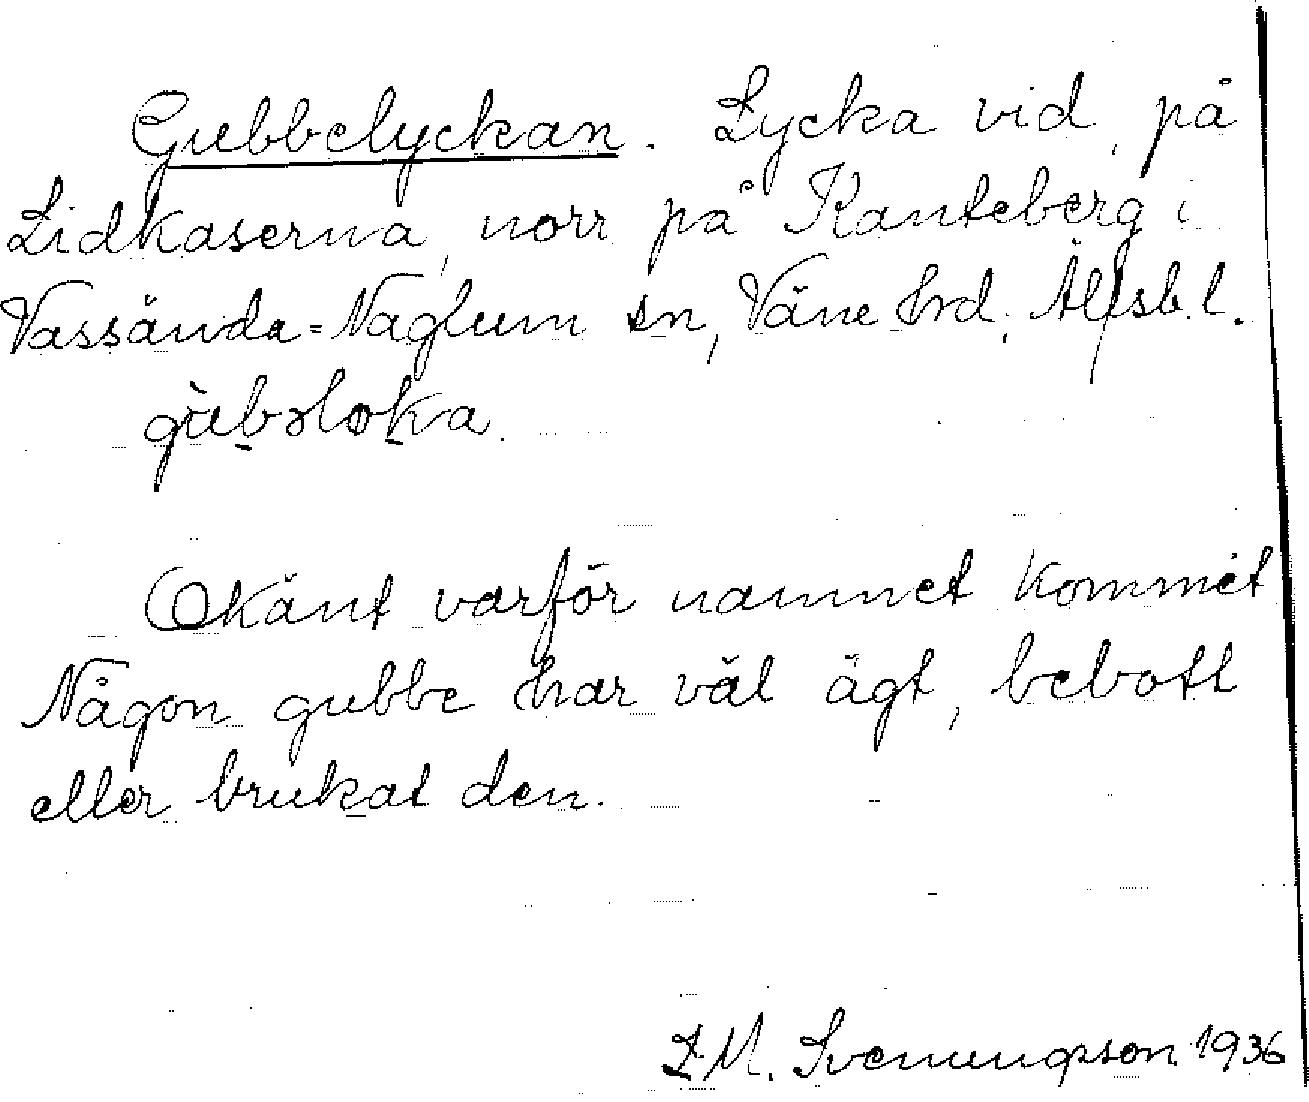 Gubbelyckan. Lycka vid, på
Lidkaserna, norr på Kanteberg i
Vassända=Naglum sn, Väne hrd, Älfsb. l.
gùbəloka.
Okänt varför namnet kommit
Någon gubbe har väl ägt, bebott
eller brukat den.
1936